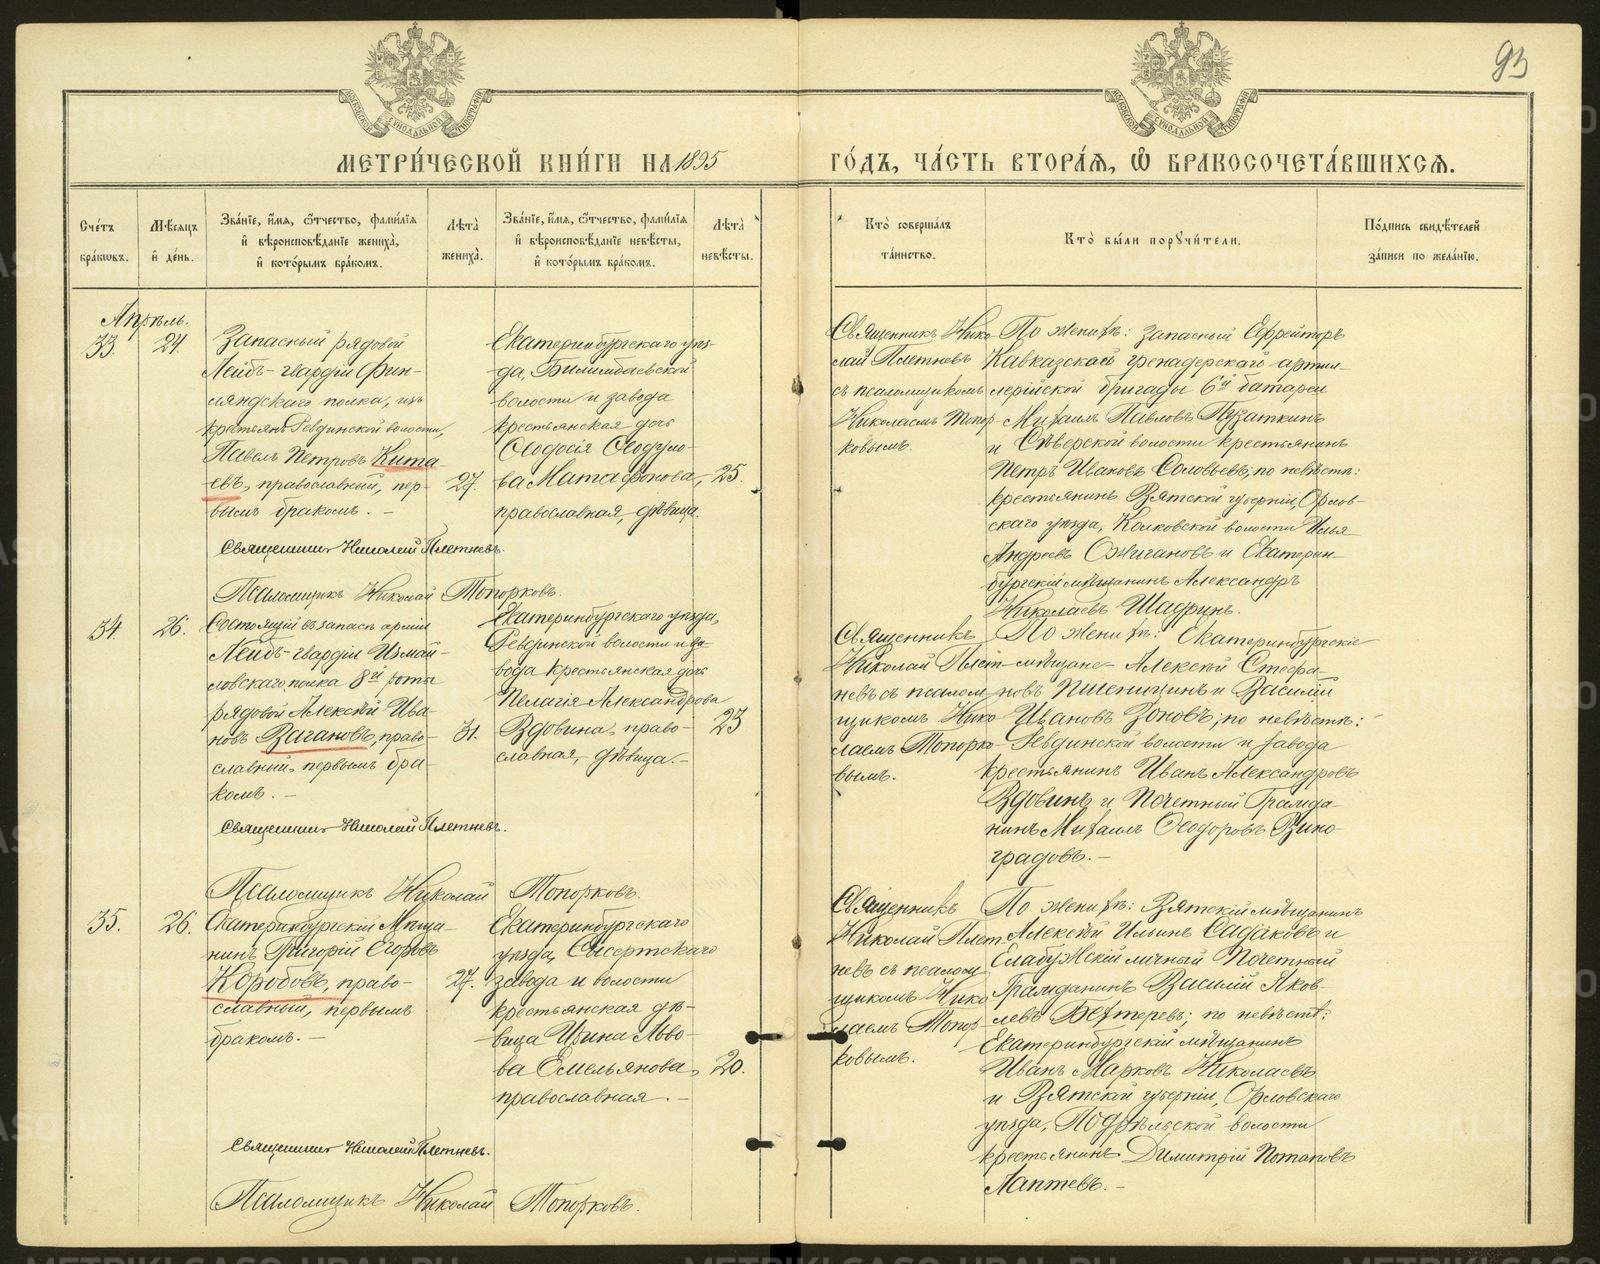 93
МЕТРИ́ЧЕСКОЙ КНИ́ГИ НА 1895
ГО́ДЪ, ЧА́СТЬ ВТОРА́Я, Ѿ БРАКОСОЧЕТА́ВШИХСЯ.
Сче́тъ бра́ковъ.
Мѣ́сяцъ и де́нь.
Зва́нїе, и́мя, о́тчество, фами́лїя и вѣроисповѣ́данїе жениха̀, и кото́рымъ бра́комъ.
Лѣта̀ жениха̀.
Зва́нїе, и́мя, о́тчество, фами́лїя и вѣроисповѣ́данїе невѣ́сты, и кото́рымъ бра́комъ.
Лѣта̀ невѣ́сты.
Кто̀ соверша́лъ та́инство.
Кто̀ бы́ли порꙋчи́тели.
По́дпись свидѣ́телей за́писи по жела́нїю.
Апрѣль.
33.
24.
Запасный рядовой
Лейбъ-гвардіи Фин-
ляндскаго полка, изъ
крестьянъ Ревдинской волости,
Павелъ Петровъ Кита-
евъ, православный, пер-
вымъ бракомъ. –
27.
Екатеринбургскаго уѣз-
да, Билимбаевской
волости и завода
крестьянская дочь
Ѳеодосія Ѳеодуло-
ва Матафонова,
православная, дѣвица.
25.
Священникъ Николай Плетневъ.
Псаломщикъ Николай Топорковъ.
Священникъ Нико-
лай Плетневъ
съ псаломщикомъ
Николаемъ Топор-
ковымъ.
По женихѣ: запасный Ефрейторъ
Кавказской гренадерской артил-
лерійской бригады 6й батареи
Михаилъ Павловъ Пузаткинъ
и Сѣверской волости крестьянинъ
Петръ Ивановъ Соловьевъ; по невѣстѣ:
крестьянинъ Вятской губерніи, Орлов-
скаго уѣзда, Колковской волости Илья
Андреевъ Ожигановъ и Екатерин-
бургскій мѣщанинъ Александръ
Николаевъ Шадринъ.
34.
26.
Состоящій въ запасѣ арміи
Лейбъ-гвардіи Измай-
ловскаго полка 8й роты
рядовой Алексѣй Ива-
новъ Вагановъ, право-
славный, первымъ бра-
комъ. –
31.
Екатеринбургскаго уѣзда,
Ревдинской волости и за-
вода крестьянская дочь
Пелагія Александрова
Вдовина, право-
славная, дѣвица. –
23
Священникъ Николай Плетневъ.
Псаломщикъ Николай Топорковъ.
Священникъ
Николай Плет-
невъ съ псалом-
щикомъ Нико-
лаемъ Топорко-
вымъ.
По женихѣ: Екатеринбургскіе
мѣщане – Алексѣй Стефа-
новъ Пшеницинъ и Василій
Ивановъ Зоновъ; по невѣстѣ:
Ревдинской волости и завода
крестьянинъ Иванъ Александровъ
Вдовинъ и Почетный Гражда-
нинъ Михаилъ Ѳеодоровъ Вино-
градовъ. –
35.
26.
Екатеринбургскій Мѣща-
нинъ Григорій Егоровъ
Коробовъ, право-
славный, первымъ
бракомъ. –
27.
Екатеринбургскаго
уѣзда, Сысертскаго
завода и волости
крестьянская дѣ-
вица Ирина Льво-
ва Емельянова,
православная. –
20.
Священникъ Николай Плетневъ.
Псаломщикъ Николай Топорковъ.
Священникъ
Николай Плет-
невъ съ псалом-
щикомъ Нико-
лаемъ Топор-
ковымъ.
По женихѣ: Вятскій мѣщанинъ
Алексѣй Ильинъ Садаковъ и
Елабужскій личный Почетный
Гражданинъ Василій Яков-
левъ Бехтеревъ; по невѣстѣ:
Екатеринбургскій мѣщанинъ
Иванъ Марковъ Николаевъ
и Вятской губерніи, Орловскаго
уѣзда, Подрѣльской волости
крестьянинъ Димитрій Потаповъ
Лаптевъ. –
METRIKI.GASO-URAL.RU